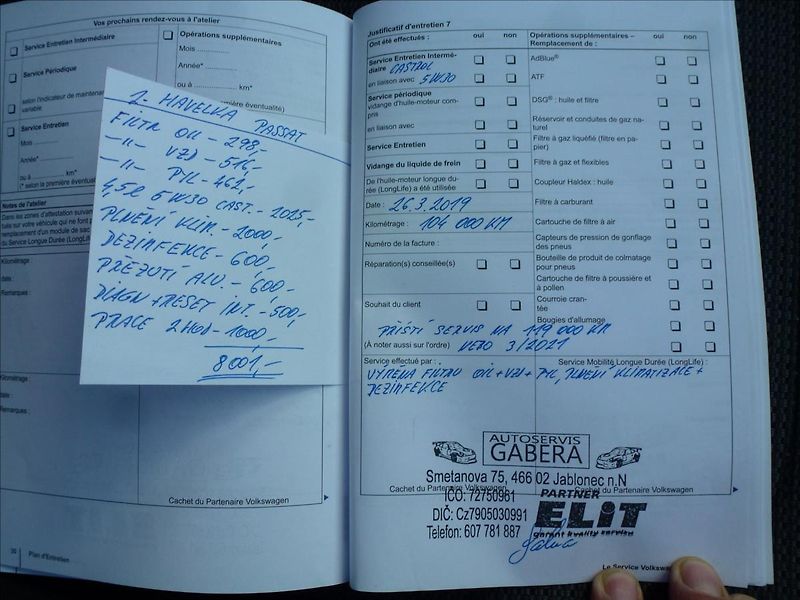 Vos prochains rendez-vous à l'atelier
Service Entretien Intermédiaire
Service Périodique
selon l'indicateur de maintenance
variable
Service Entretien
Mois
Année*
ou à km*
(* selon la première
Opérations supplémentaires
Mois
Année*
ou à km*
première éventualité)
Notes de l'atelier
Kilométrage :
date :
Remarques :
Kilométrage
date :
Remarques :
Cachet du Partenaire Volkswagen
30 Plan d'Entretien
1- HAVELKA PASSAT
FILTR OIL - 298,-
-"- VZD - 516,-
-"- PYL - 462,-
4,5l 5W30 CAST. - 2025,-
PLNĚNÍ KLIM. - 2000,-
DEZINFEKCE - 600,-
PŘEZUTÍ ALU. - 600,-
DIAGN + RESET INT. - 500,-
PRÁCE 2HOD - 1000,-
8001,-
Justificatif d'entretien 7
Ont été effectués : oui non
Service Entretien Intermé-
diaire CASTROL
en liaison avec 5W30
Service périodique
vidange d'huile-moteur com-
pris
en liaison avec
Service Entretien
Vidange du liquide de frein
De l'huile-moteur longue du-
rée (LongLife) a été utilisée
Date : 26.3.2019
Kilométrage : 104 000 KM
Numéro de la facture :
Réparation(s) conseillée(s)
Souhait du client
Opérations supplémentaires –
Remplacement de : oui non
AdBlue®
ATF
DSG® : huile et filtre
Réservoir et conduites de gaz na-
turel
Filtre à gaz liquéfié (filtre en pa-
pier)
Filtre à gaz et flexibles
Coupleur Haldex : huile
Filtre à carburant
Cartouche de filtre à air
Capteurs de pression de gonflage
des pneus
Bouteille de produit de colmatage
pour pneus
Cartouche de filtre à poussière et
à pollen
Courroie cran-
tée
Bougies d'allumage
PŘÍŠTÍ SERVIS NA 119 000 KM
(À noter aussi sur l'ordre) NEBO 3/2021
Service effectué par :
Service Mobilité Longue Durée (LongLife) :
VÝMĚNA FILTRU OIL + VZD + PYL, PLNĚNÍ KLIMATIZACE +
DEZINFEKCE
AUTOSERVIS
GABERA
Smetanova 75, 466 02 Jablonec n.N
Cachet du Partenaire Volkswagen
Cachet du Partenaire Volkswagen
IČO: 72750961
DIČ: Cz7905030991
Telefon: 607 781 887
PARTNER
ELIT
garant kvality servisu
Le Service Volkswagen